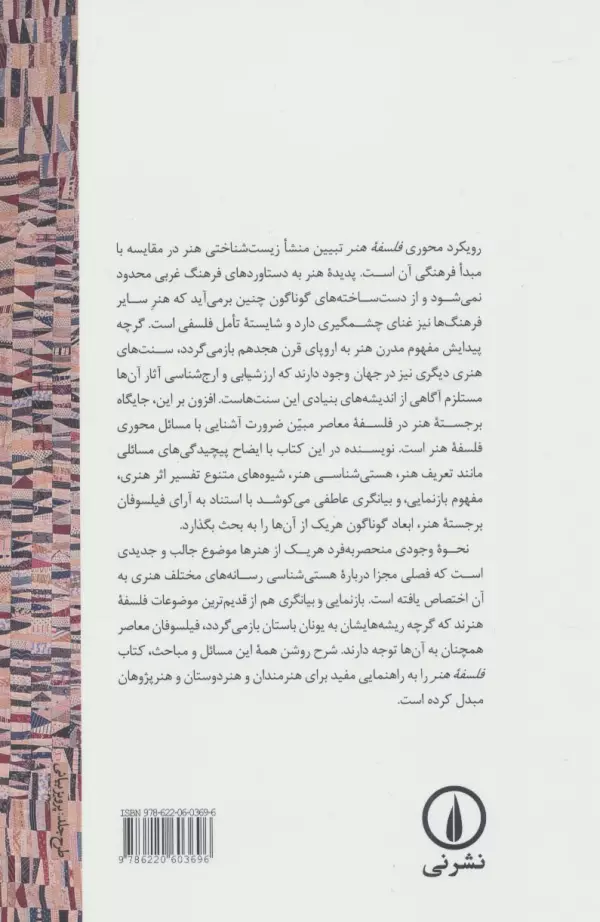 رویکرد محوری فلسفهٔ هنر تبیین منشأ زیست‌شناختی هنر در مقایسه با
مبدأ فرهنگی آن است. پدیدهٔ هنر به دستاوردهای فرهنگ غربی محدود
نمی‌شود و از دست‌ساخته‌های گوناگون چنین برمی‌آید که هنرِ سایر
فرهنگ‌ها نیز غنای چشمگیری دارد و شایستهٔ تأمل فلسفی است. گرچه
پیدایش مفهوم مدرن هنر به اروپای قرن هجدهم بازمی‌گردد، سنت‌های
هنری دیگری نیز در جهان وجود دارند که ارزشیابی و ارج‌شناسی آثار آن‌ها
مستلزم آگاهی از اندیشه‌های بنیادی این سنت‌هاست. افزون بر این، جایگاه
برجستهٔ هنر در فلسفهٔ معاصر مبیّن ضرورت آشنایی با مسائل محوری
فلسفهٔ هنر است. نویسنده در این کتاب با ایضاح پیچیدگی‌های مسائلی
مانند تعریف هنر، هستی‌شناسی هنر، شیوه‌های متنوع تفسیر اثر هنری،
مفهوم بازنمایی، و بیانگری عاطفی می‌کوشد با استناد به آرای فیلسوفان
برجستهٔ هنر، ابعاد گوناگون هریک از آن‌ها را به بحث بگذارد.
نحوهٔ وجودی منحصربه‌فرد هریک از هنرها موضوع جالب و جدیدی
است که فصلی مجزا دربارهٔ هستی‌شناسی رسانه‌های مختلف هنری به
آن اختصاص یافته است. بازنمایی و بیانگری هم از قدیم‌ترین موضوعات فلسفهٔ
هنرند که گرچه ریشه‌هایشان به یونان باستان بازمی‌گردد، فیلسوفان معاصر
همچنان به آن‌ها توجه دارند. شرح روشن همهٔ این مسائل و مباحث، کتاب
فلسفهٔ هنر را به راهنمایی مفید برای هنرمندان و هنردوستان و هنرپژوهان
مبدل کرده است.
طرح جلد: پرویز بیانی
ISBN 978-622-06-0369-6
9 786220 603696
نشر نی